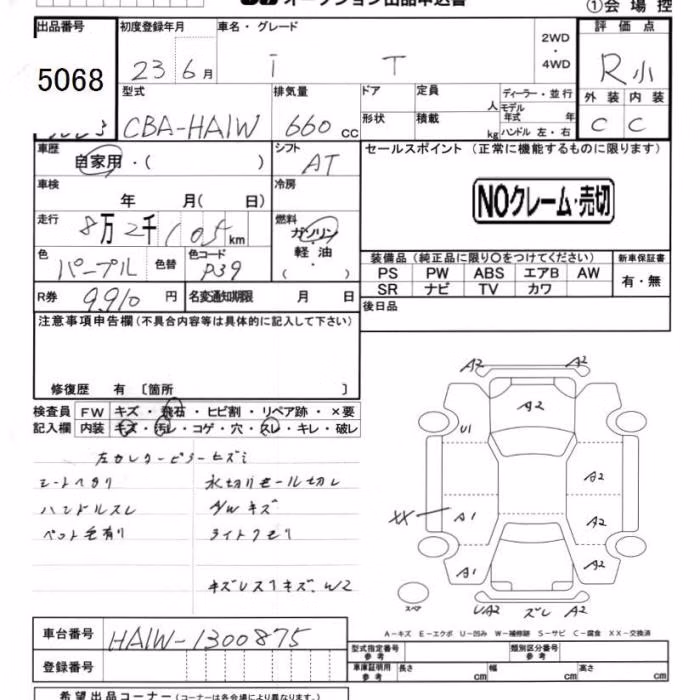 オークション出品申込書
①会場控
出品番号 初度登録年月 車名・グレード 2WD・4WD 評価点
5068 23 6月 i T R小
型式 排気量 ドア 定員 人 ディーラー・並行 外装 内装
CBA-HA1W 660cc 形状 積載 kg モデル年式 年 ハンドル 左・右 C C
車歴 自家用・( ) シフト AT セールスポイント (正常に機能するものに限ります)
車検 年 月( 日) 冷房
NOクレーム・売切
走行 8万2千105km 燃料 ガソリン・軽油・( )
色 パープル 色替 色コード P39
装備品 (純正品に限り○をつけてください) 新車保証書
PS PW ABS エアB AW 有・無
SR ナビ TV カワ
R券 9,910円 名変通知期限 月 日
後日品
注意事項申告欄(不具合内容等は具体的に記入して下さい)
修復歴 有 〔箇所 〕
検査員記入欄 FW キズ・飛石・ヒビ割・リペア跡・×要
内装 キズ・汚レ・コゲ・穴・スレ・キレ・破レ
シートヘタリ 水切りモール切レ
ハンドルスレ A/Wキズ
ペット毛有り ライトクモリ
A2 A2
A2
U1
A2
XX A1 A2
A1 A2
スペア UA2 ズレ A2
A-キズ E-エクボ U-凹み W-補修跡 S-サビ C-腐食 XX-交換済
車台番号 HA1W-1300875
型式指定番号 参考 類別区分番号 参考
登録番号
車庫証明用 参考 長さ cm 幅 cm 高さ cm
希望出品コーナー(コーナーは各会場により異なります。)